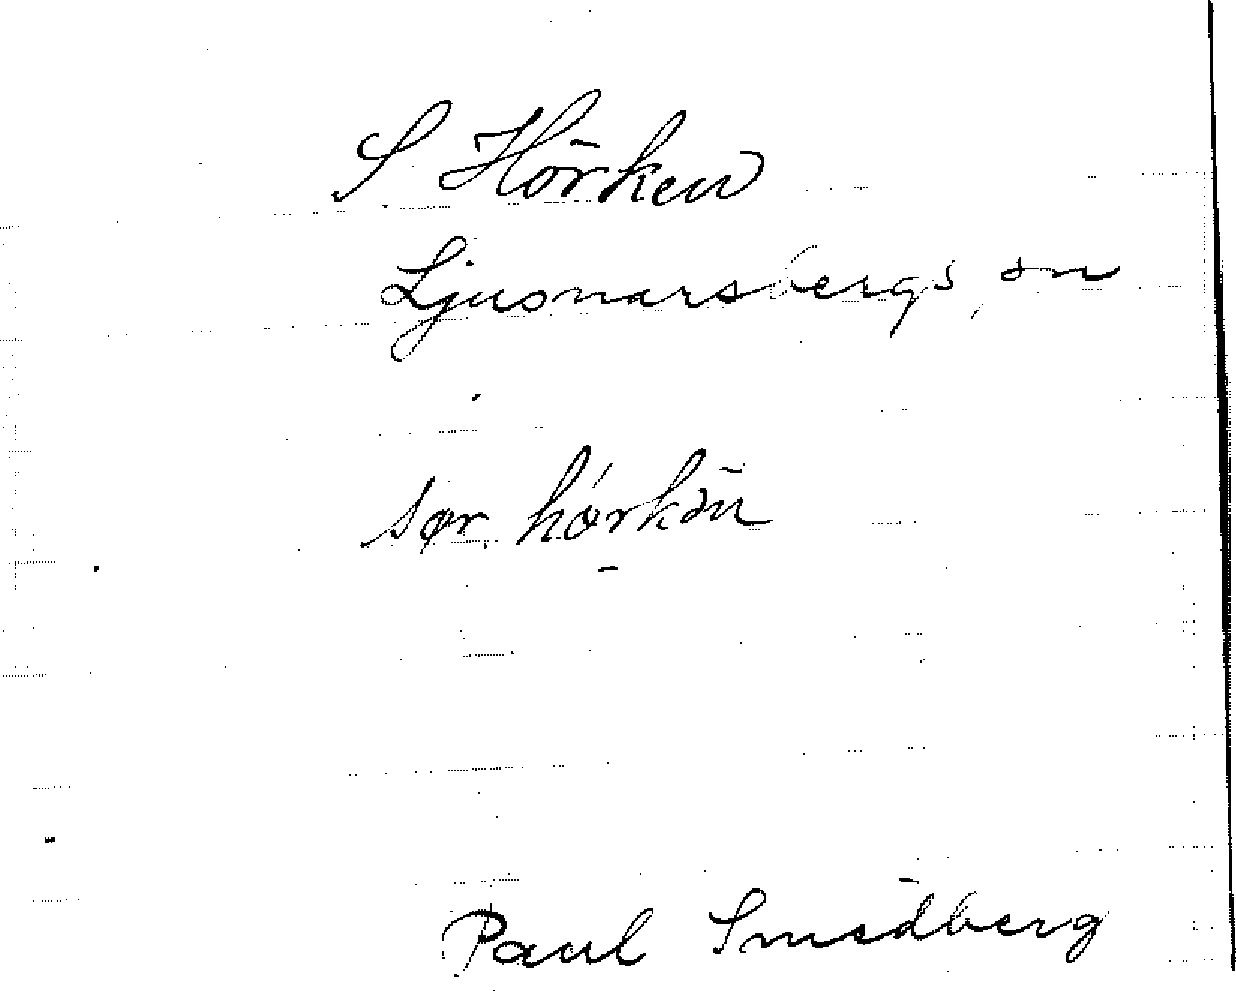 S Hörken
Ljusnarsbergs sn
sør hørkən
Paul Smedberg